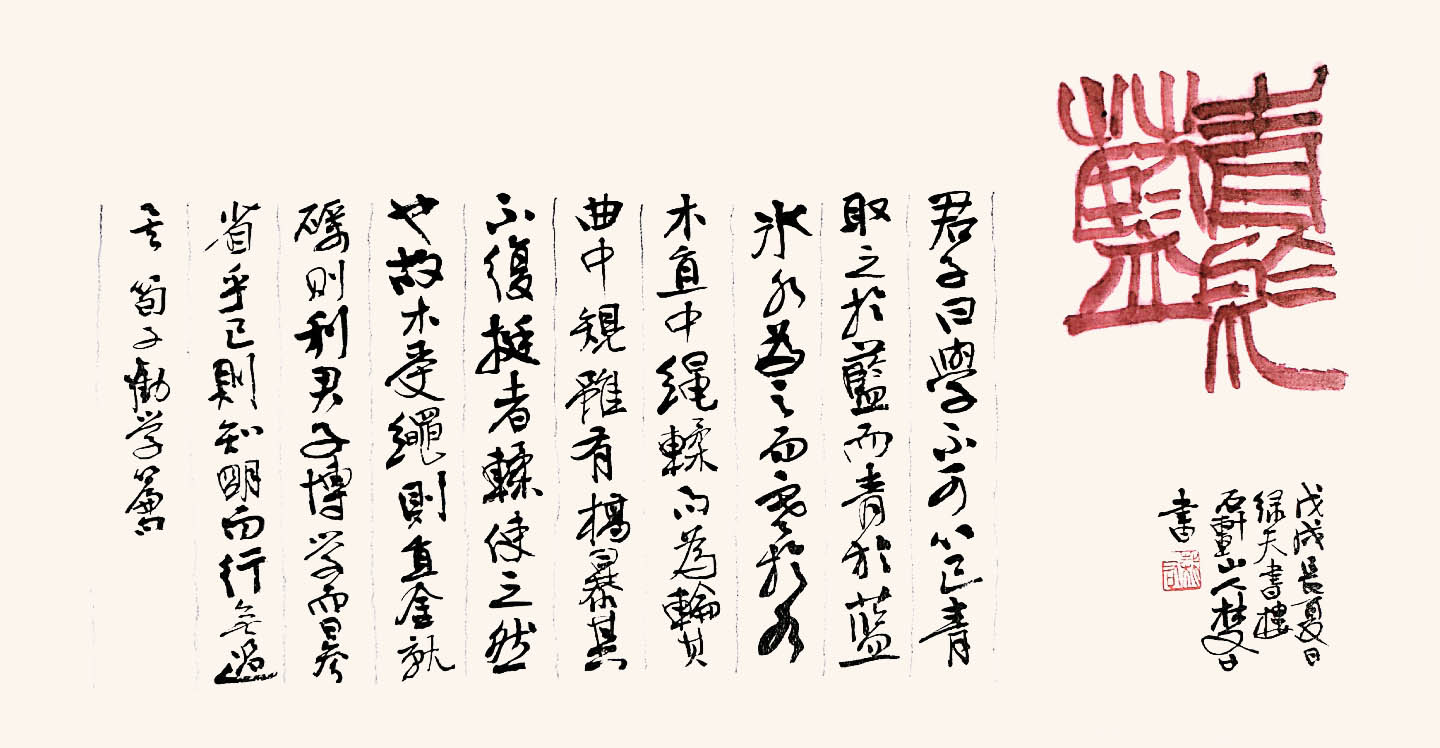 青於
藍
君子曰學不可以已青
取之於藍而青於藍
冰水為之而寒於水
木直中绳輮而為輪其
曲中規雖有槁暴其
不復挺者輮使之然
也故木受繩則直金就
礪则利君子博学而日参
省乎己則知明而行無過
矣 荀子勸学篇
戊戌長夏日
绿天書樓
山人
書